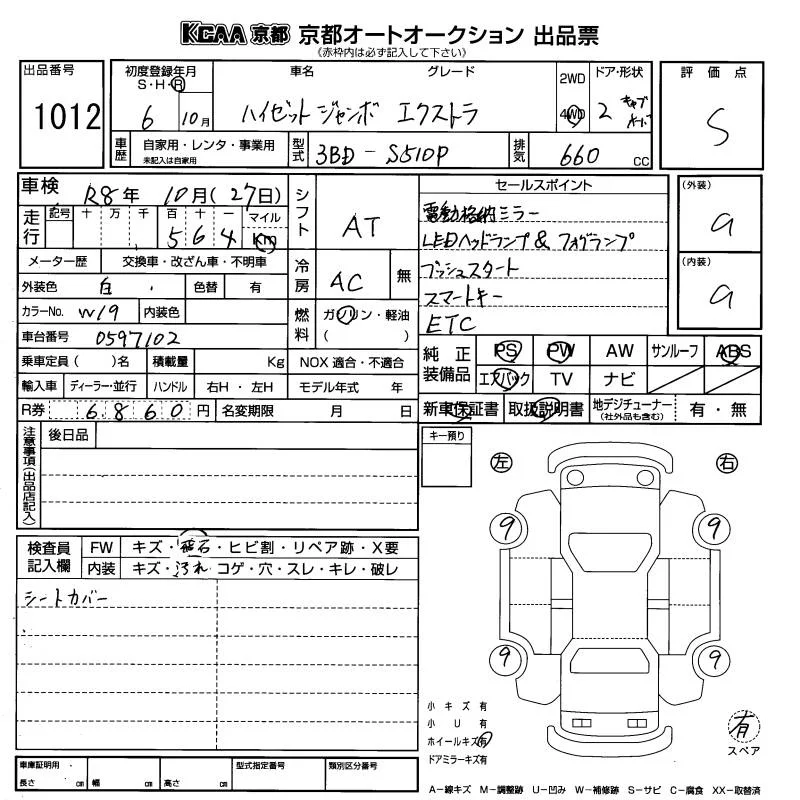 KCAA 京都 京都オートオークション 出品票
《赤枠内は必ず記入して下さい》
出品番号
1012
初度登録年月
S・H・R
6 10月
車名 グレード
ハイゼット ジャンボ エクストラ
2WD
4WD
ドア・形状
2 キャブ
評価点
S
車歴 自家用・レンタ・事業用
未記入は自家用
型式 3BD-S510P
排気 660 cc
車検 R8年 10月(27日)
走行 記号 十 万 千 百 十 一 マイル
5 6 4 Km
メーター歴 交換車・改ざん車・不明車
外装色 白 色替 有
カラーNo. W19 内装色
車台番号 0597102
乗車定員( )名 積載量 Kg
輸入車 ディーラー・並行 ハンドル 右H・左H
R券 6860円 名変期限 月 日
シフト AT
冷房 AC 無
燃料 ガソリン・軽油
( )
NOX 適合・不適合
モデル年式 年
セールスポイント
電動格納ミラー
LEDヘッドランプ & フォグランプ
プッシュスタート
スマートキー
ETC
(外装)
a
(内装)
a
純正装備品 PS PW AW サンルーフ ABS
エアバック TV ナビ
新車保証書 取扱説明書 地デジチューナー
(社外品も含む) 有・無
注意事項(出品店記入)
後日品
キー預り
左
右
9 9
9 9
検査員記入欄
FW キズ・飛石・ヒビ割・リペア跡・X要
内装 キズ・汚れ・コゲ・穴・スレ・キレ・破レ
シートカバー
小キズ 有
小U 有
ホイールキズ有
ドアミラーキズ有
有
スペア
車庫証明用
長さ cm 幅 cm 高さ cm
型式指定番号
類別区分番号
A-線キズ M-調整跡 U-凹み W-補修跡 S-サビ C-腐食 XX-取替済